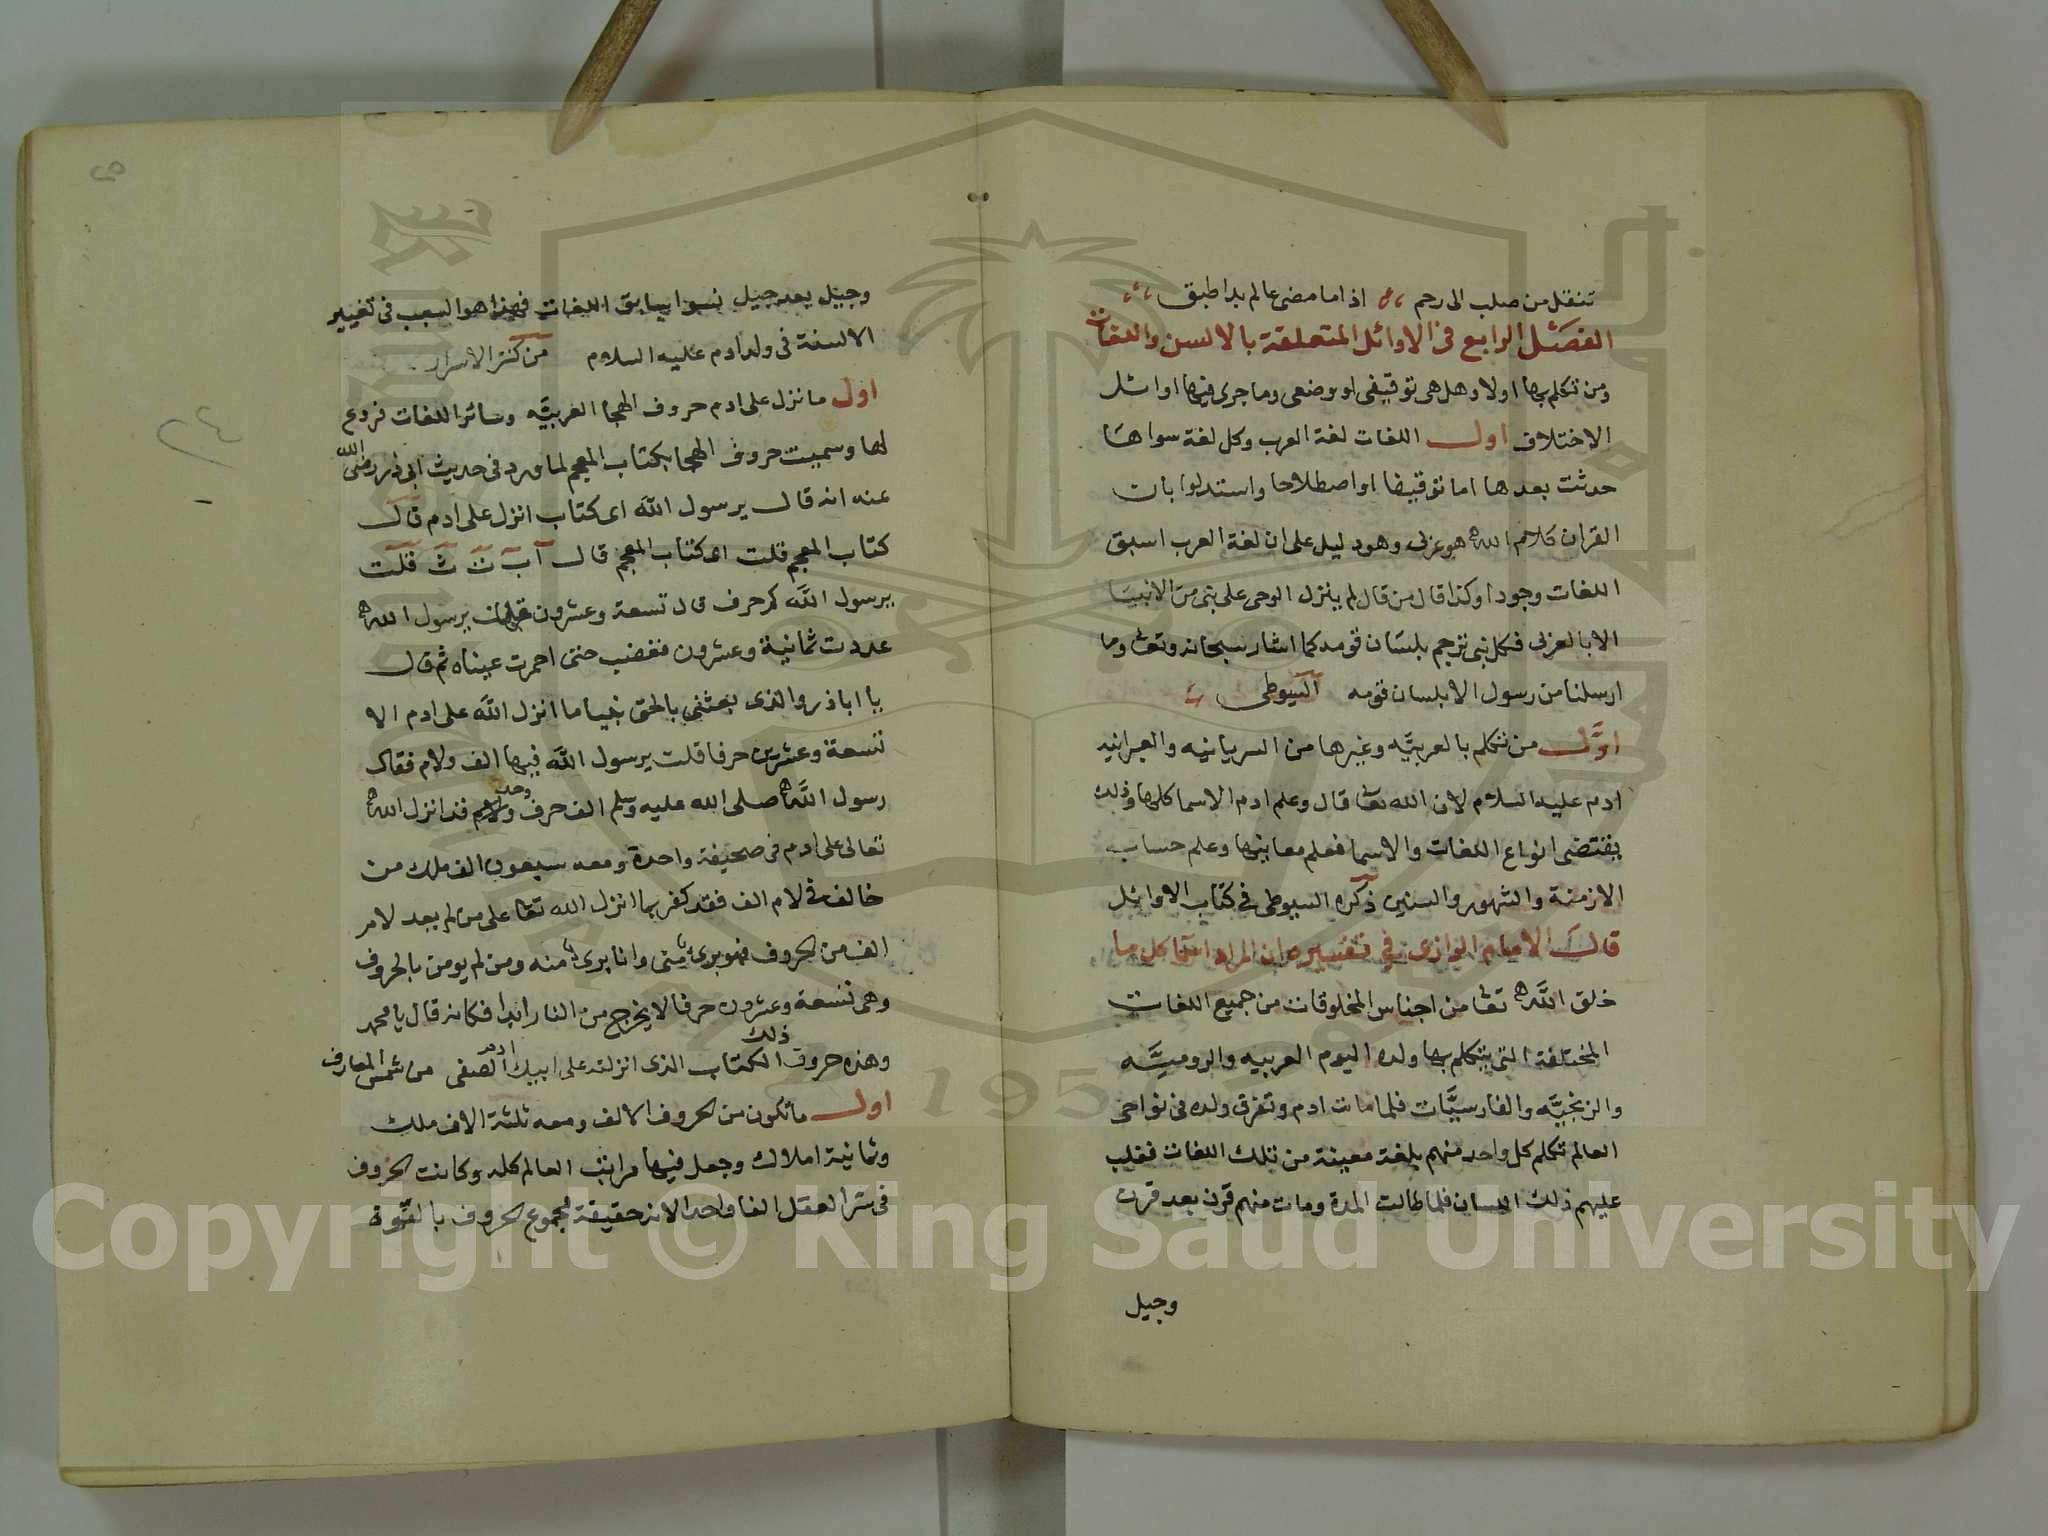 تنقل من صلب الى رحم اذا ما مضى عالم بدا طبق
الفصل الرابع فى الاوائل المتعلقة بالالسن واللغات
ومن تكلم بها اولا وهل هى توقيفى او وضعى وما جرى فيها اوائل
الاختلاف اول اللغات لغة العرب وكل لغة سواها
حدثت بعدها اما توقيفا او اصطلاحا واستدلوا بان
القران كلام الله هو عربى وهو دليل على ان لغة العرب اسبق
اللغات وجودا وكذا قال من قال لم ينزل الوحى على نبى من الانبيا
الا بالعربى فكل نبى ترجم بلسان قومه كما اشار سبحانه وتعا وما
ارسلنا من رسول الا بلسان قومه السيوطى
اول من تكلم بالعربيه وغيرها من السريانيه والعبرانيه
ادم عليه السلام لان الله تعا قال وعلم ادم الاسما كلها وذلك
يقتضى انواع اللغات والاسما فعلم معانيها وعلم حساب
الازمنة والشهور والسنين ذكره السيوطى فى كتاب الاوائل
قال الامام الرازى فى تفسيره ان المراد اسما كل ما
خلق الله تعا من اجناس المخلوقات من جميع اللغات
المختلفة التى يتكلم بها ولده اليوم العربيه والروميه
والزنجيه والفارسيات فلما مات ادم وتفرق ولده فى نواحى
العالم تكلم كل واحد منهم بلغة معينة من تلك اللغات فغلب
عليهم ذلك اللسان فلما طالت المدة ومات منهم قرن بعد قرن
وجيل
وجيل بعد جيل نسوا سابق اللغات فهذا هو السبب فى تغيير
الالسنة فى ولد ادم عليه السلام من كنز الاسرار
اول ما نزل على ادم حروف الهجا العربيه وسائر اللغات فروع
لها وسميت حروف الهجا بكتاب المعجم لما ورد فى حديث ابى ذر رضى الله
عنه انه قال يرسول الله اى كتاب انزل على ادم قال
كتاب المعجم قلت اى كتاب المعجم قال ا ب ت ث قلت
يرسول الله كم حرف قال تسعة وعشرون قلت يرسول الله
عددت ثمانية وعشرون فغضب حتى احمرت عيناه ثم قال
يا اباذر والذى بعثنى بالحق نبيا ما انزل الله على ادم الا
تسعة وعشرين حرفا قلت يرسول الله فيها الف ولام فقال
رسول الله صلى الله عليه وسلم الف حرف واحد ولام قد انزل الله
تعالى على ادم فى صحيفة واحدة ومعه سبعون الف ملك من
خالف فى لام الف فقد كفر بما انزل الله تعا على من لم يعد لام
الف من الحروف فهو برى منى وانا برى منه ومن لم يومن بالحروف
وهى تسعة وعشرون حرفا لا يخرج من النار ابدا فكانه قال يا محمد
وهذه حروف ذلك الكتاب الذى انزلته على ابيك ادم الصفى من شمس المعارف
اول ما تكون من الحروف الالف ومعه ثلثة الاف ملك
وثمانية املاك وجعل فيها مراتب العالم كله وكانت الحروف
فى سر العقل الفا واحدا لانه حقيقة مجموع الحروف بالقوة
٢٤
Copyright © King Saud University